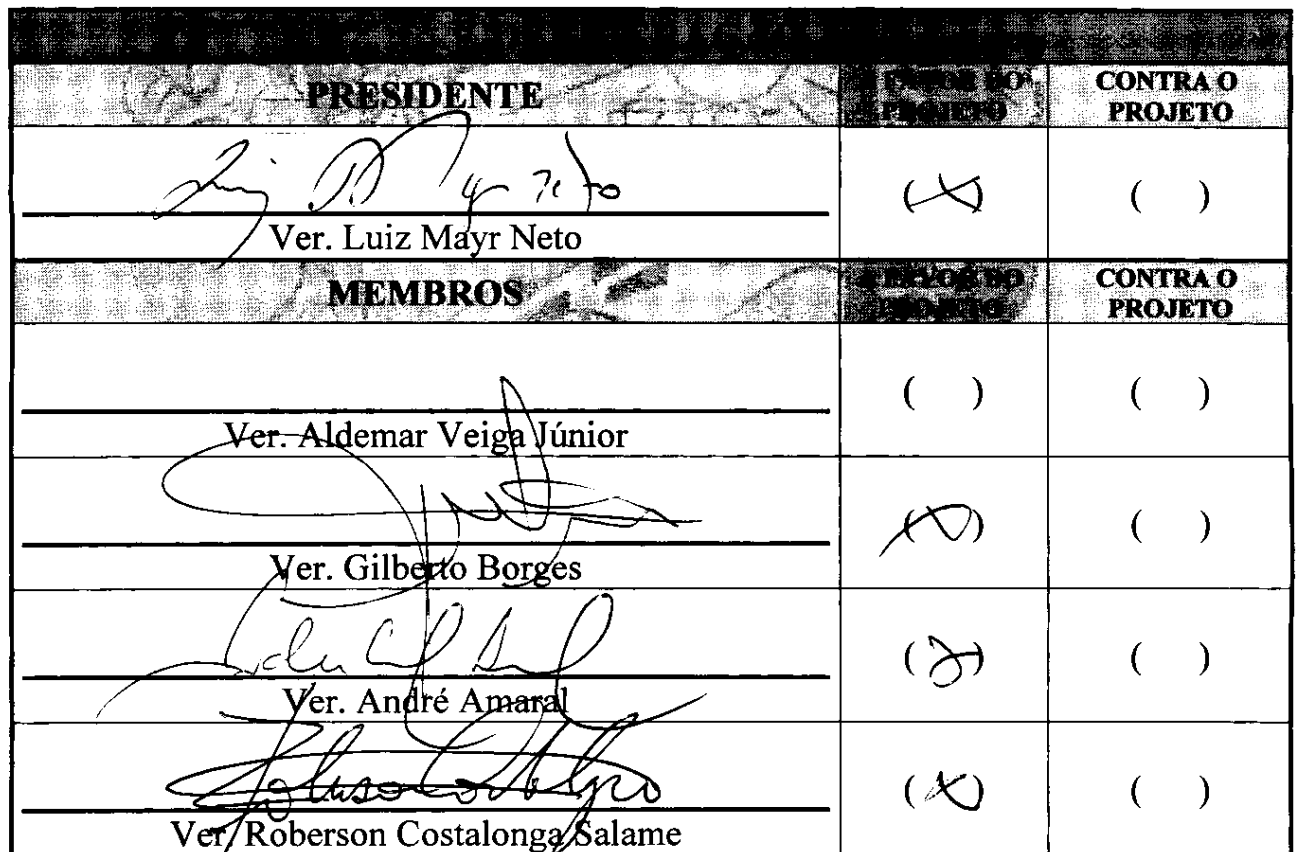 PRESIDENTE A FAVOR DO PROJETO CONTRA O PROJETO
( X ) ( )
Ver. Luiz Mayr Neto
MEMBROS A FAVOR DO PROJETO CONTRA O PROJETO
( ) ( )
Ver. Aldemar Veiga Júnior
( X ) ( )
Ver. Gilberto Borges
( X ) ( )
Ver. André Amaral
( X ) ( )
Ver. Roberson Costalonga Salame